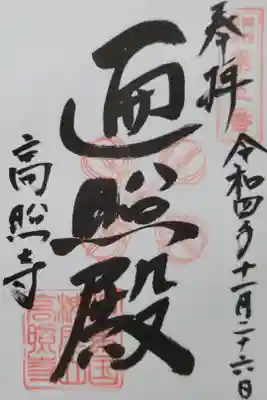 奉拝
令和四年十一月二十六日
遍照殿
高照寺